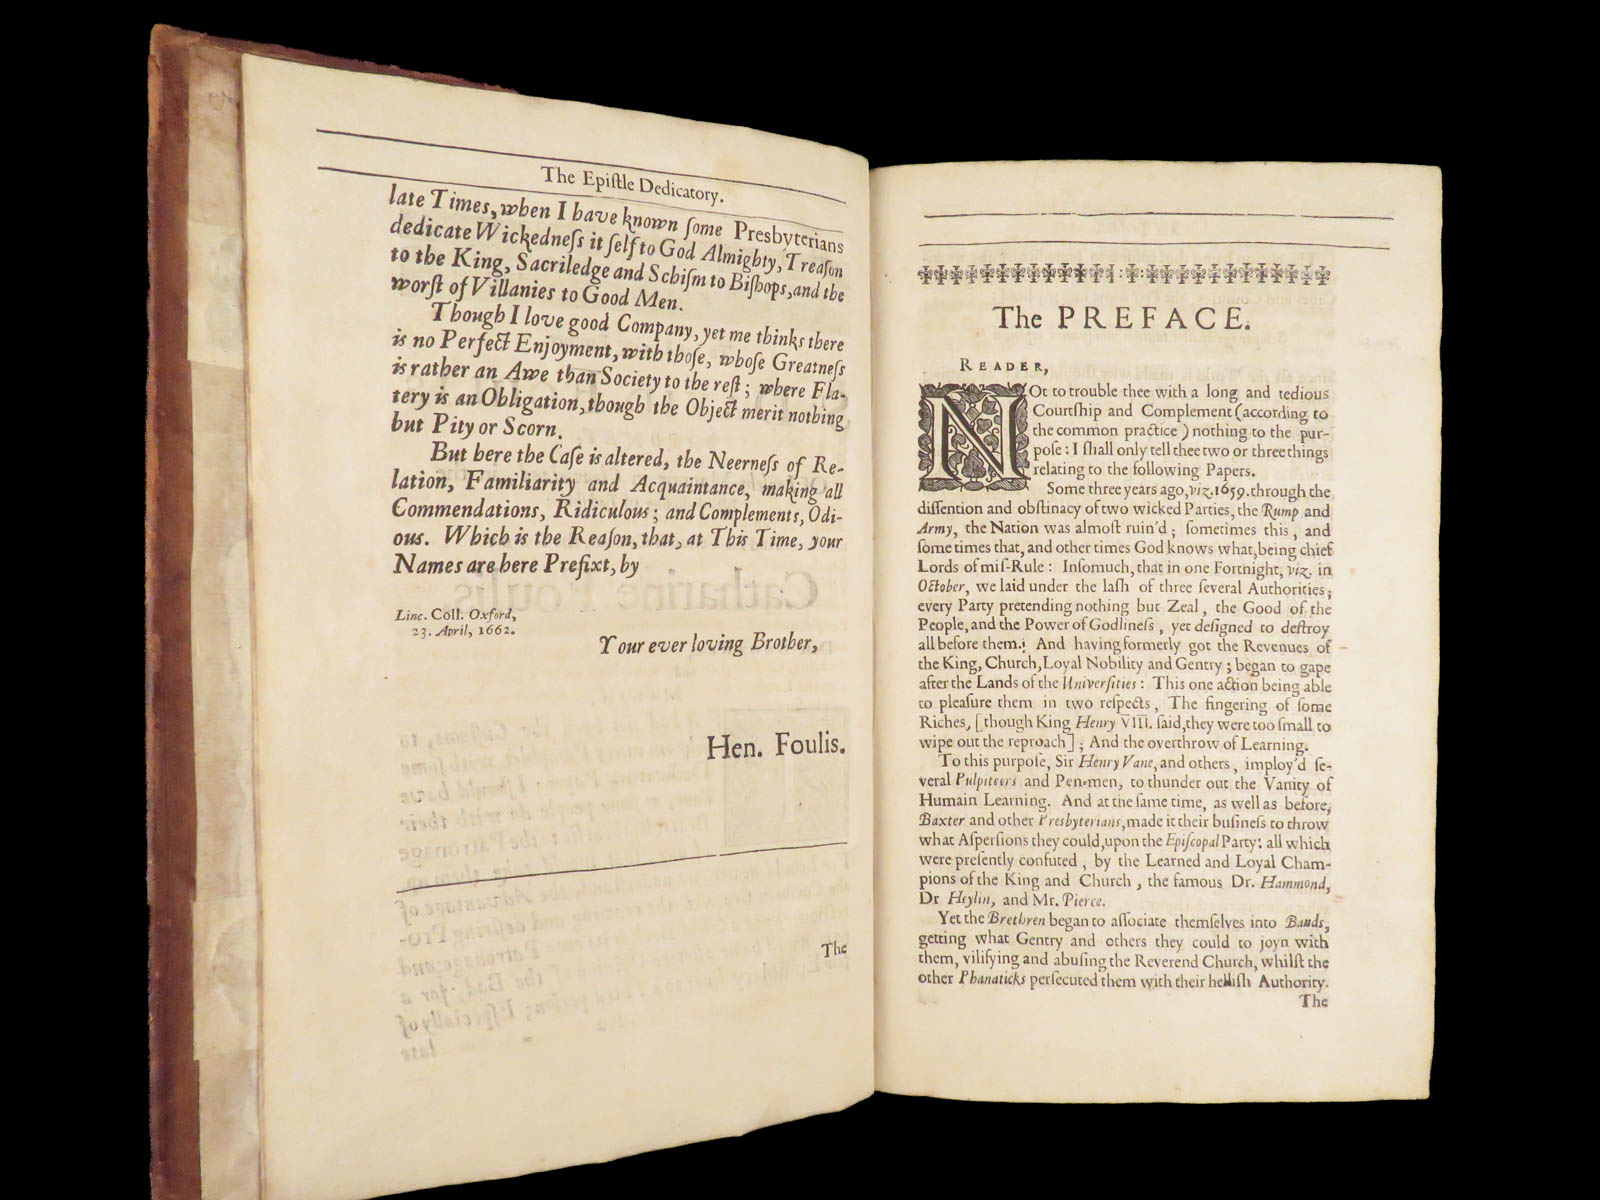 The Epiſtle Dedicatory.
late Times, when I have known ſome Presbyterians
dedicate Wickedneſs it ſelf to God Almighty, Treaſon
to the King, Sacriledge and Schiſm to Biſhops, and the
worſt of Villanies to Good Men.
Though I love good Company, yet me thinks there
is no Perfect Enjoyment, with thoſe, whoſe Greatneſs
is rather an Awe than Society to the reſt; where Fla-
tery is an Obligation, though the Object merit nothing
but Pity or Scorn.
But here the Caſe is altered, the Neerneſs of Re-
lation, Familiarity and Acquaintance, making all
Commendations, Ridiculous; and Complements, Odi-
ous. Which is the Reaſon, that, at This Time, your
Names are here Prefixt, by
Linc. Coll. Oxford,
23. April, 1662.
Your ever loving Brother,
Hen. Foulis.
The
The PREFACE.
READER,
NOt to trouble thee with a long and tedious
Courtſhip and Complement (according to
the common practice) nothing to the pur-
poſe: I ſhall only tell thee two or three things
relating to the following Papers.
Some three years ago, viz. 1659. through the
diſſention and obſtinacy of two wicked Parties, the Rump and
Army, the Nation was almoſt ruin'd; ſometimes this, and
ſometimes that, and other times God knows what, being chief
Lords of miſ-Rule: Inſomuch, that in one Fortnight, viz. in
October, we laid under the laſh of three ſeveral Authorities;
every Party pretending nothing but Zeal, the Good of the
People, and the Power of Godlineſs, yet deſigned to deſtroy
all before them.: And having formerly got the Revenues of
the King, Church, Loyal Nobility and Gentry; began to gape
after the Lands of the Univerſities: This one action being able
to pleaſure them in two reſpects, The fingering of ſome
Riches, [though King Henry VIII. ſaid, they were too ſmall to
wipe out the reproach]; And the overthrow of Learning.
To this purpoſe, Sir Henry Vane, and others, imploy'd ſe-
veral Pulpiteers and Pen-men, to thunder out the Vanity of
Humain Learning. And at the ſame time, as well as before,
Baxter and other Presbyterians, made it their buſineſs to throw
what Aſperſions they could, upon the Epiſcopal Party: all which
were preſently confuted, by the Learned and Loyal Cham-
pions of the King and Church, the famous Dr. Hammond,
Dr Heylin, and Mr. Pierce.
Yet the Brethren began to aſſociate themſelves into Bands,
getting what Gentry and others they could to joyn with
them, vilifying and abuſing the Reverend Church, whilſt the
other Phanaticks perſecuted them with their helliſh Authority.
The